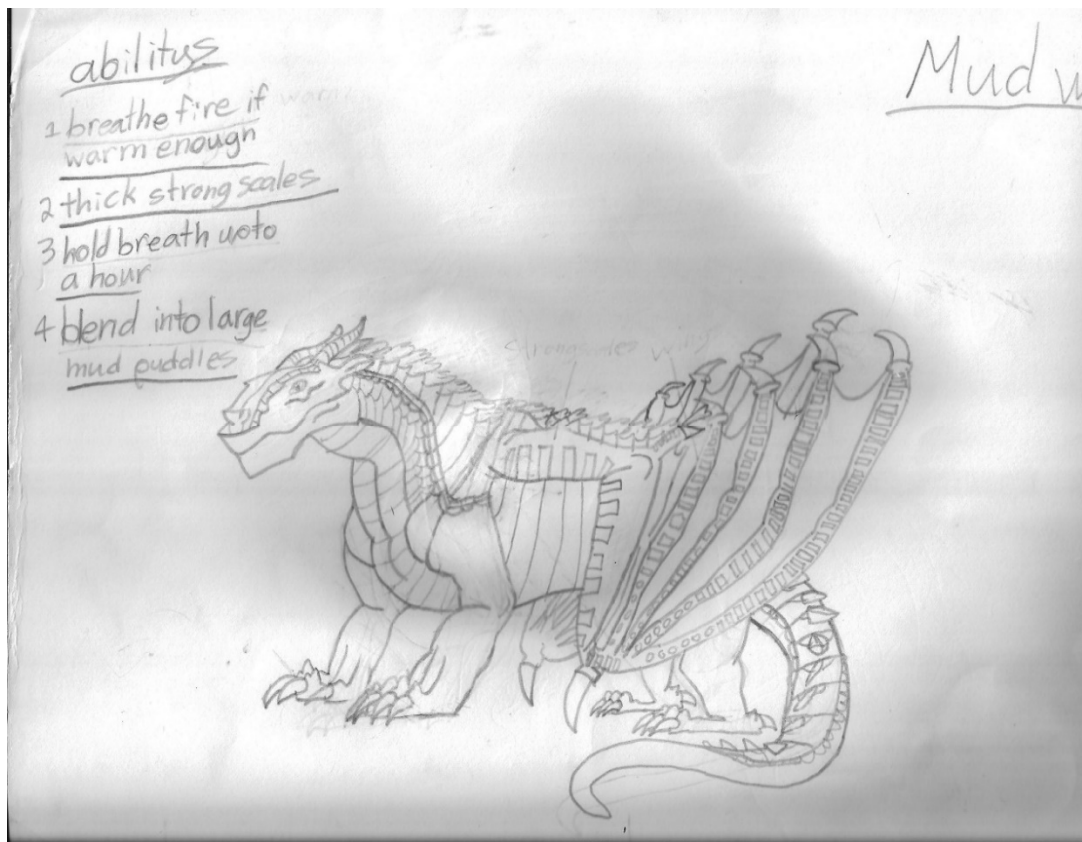 abilitys
1 breathe fire if
warm enough
2 thick strong scales
3 hold breath upto
a hour
4 blend into large
mud puddles
Mud w